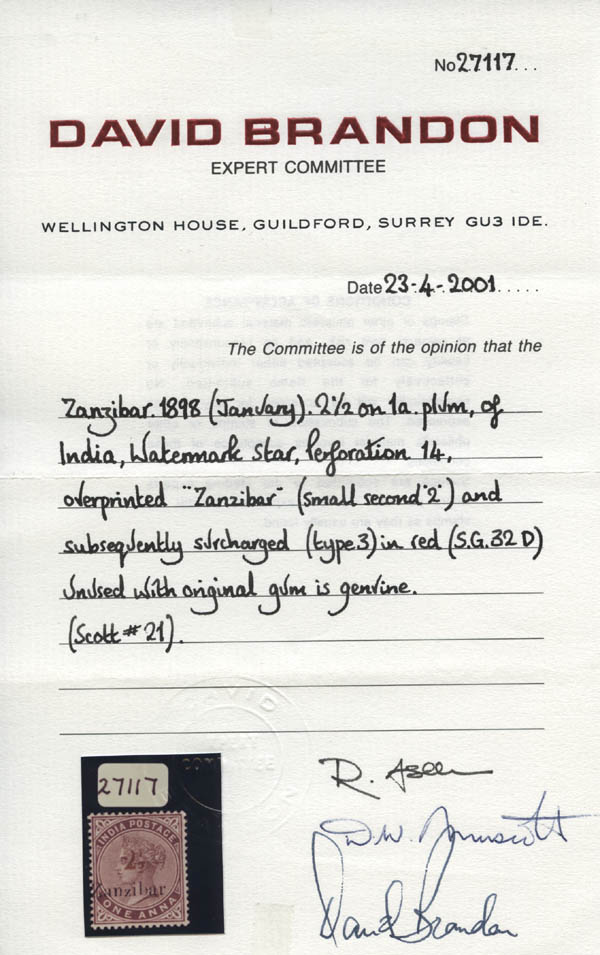 No 27117...
DAVID BRANDON
EXPERT COMMITTEE
WELLINGTON HOUSE, GUILDFORD, SURREY GU3 IDE.
Date 23-4-2001.....
The Committee is of the opinion that the
Zanzibar. 1898 (January). 2½ on 1a. plum, of
India, Watermark Star, Perforation 14,
overprinted "Zanzibar" (small second "z") and
subsequently surcharged (type.3) in red (S.G. 32 D)
unused with original gum is genuine.
(Scott # 21).
DAVID
27117
INDIA POSTAGE
2½
Zanzibar
ONE ANNA
R.
D.W.
David Brandon